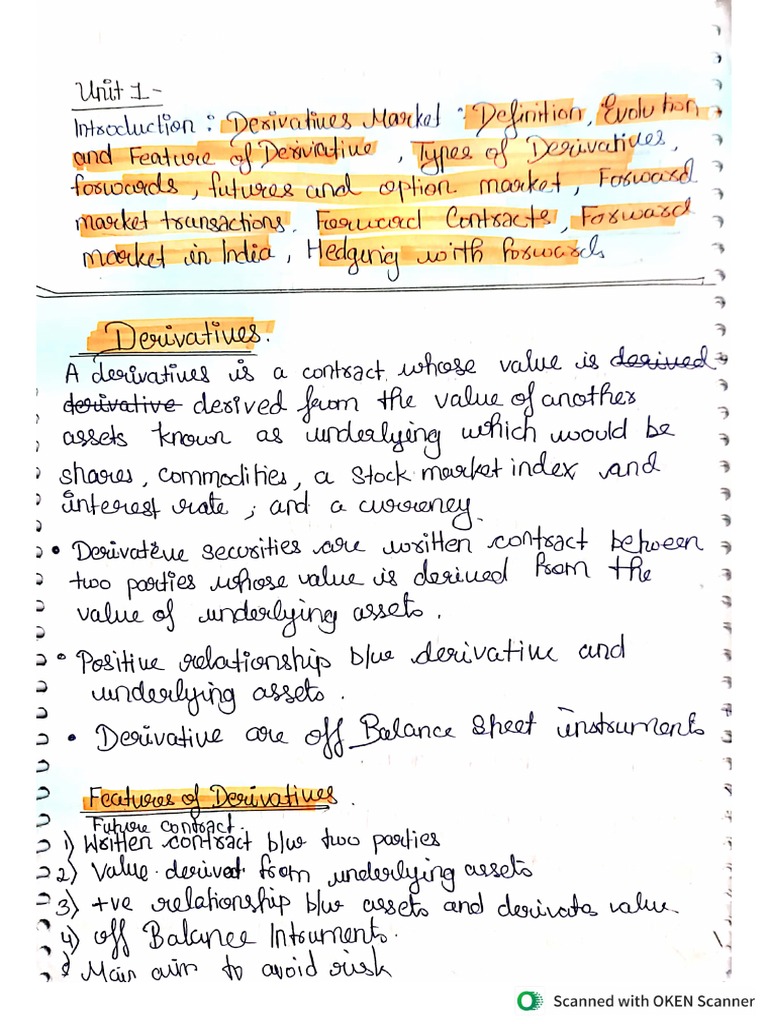 Unit 1-
Introduction : Derivatives Market : Definition, Evolution
and Feature of Derivative , Types of Derivatives,
forwards, futures and option market, Forward
market transactions. Forward Contracts, Forward
market in India, Hedging with forwards
Derivatives.
A derivatives is a contract whose value is derived
derivative derived from the value of another
assets known as underlying which would be
shares, commodities, a stock market index and
interest rate, and a currency.
• Derivative securities are written contract between
two parties whose value is derived from the
value of underlying assets.
• Positive relationship b/w derivative and
underlying assets.
• Derivative are off Balance sheet instruments
Features of Derivatives.
Future contract.
1) Written contract b/w two parties
2) Value derived from underlying assets
3) +ve relationship b/w assets and derivats value
4) off Balance Intruments.
Main aim to avoid risk
Scanned with OKEN Scanner